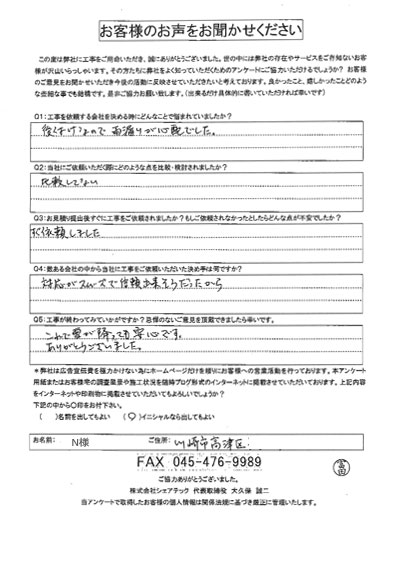 お客様のお声をお聞かせください
この度は弊社に工事をご用命いただき、誠にありがとうございました。世の中には弊社の存在やサービスをご存知ないお客
様が沢山いらっしゃいます。その方たちに弊社をよく知っていただくためのアンケートにご協力いただけるでしょうか? お客様
のご意見をお聞かせいただき今後の活動に反映させていただきたいと考えております。良かったこと、嬉しかったことどのよう
な些細な事でも結構です。是非ご協力お願い致します。(出来るだけ具体的に書いていただければ幸いです)
Q1:工事を依頼する会社を決める時にどんなことで悩まれていましたか?
後付けなので雨漏りが心配でした。
Q2:当社にご依頼いただく際にどのような点を比較・検討されましたか?
比較してない
Q3:お見積り提出後すぐに工事をご依頼されましたか?もしご依頼されなかったとしたらどんな点が不安でしたか?
すぐ依頼しました
Q4:数ある会社の中から当社に工事をご依頼いただいた決め手は何ですか?
対応がスムーズで信頼出来そうだったから
Q5:工事が終わってみていかがですか?忌憚のないご意見を頂戴できましたら幸いです。
これで雪が降っても安心です。
ありがとうございました。
*弊社は広告宣伝費を極力かけない為にホームページだけを頼りにお客様への営業活動を行っております。本アンケート
用紙またはお客様宅の調査風景や施工状況を随時ブログ形式のインターネットに掲載させていただいております。上記内容
をインターネットや印刷物に掲載させていただいてもよろしいでしょうか?
下記の中から〇印をお付下さい。
( )名前を出してもよい (〇)イニシャルなら出してもよい
お名前: N様 ご住所: 川崎市高津区
FAX 045-476-9989
ご協力ありがとうございました。
株式会社シェアテック 代表取締役 大久保 誠二
当アンケートで取得したお客様の個人情報は関係法規に基づき厳正に管理いたします。